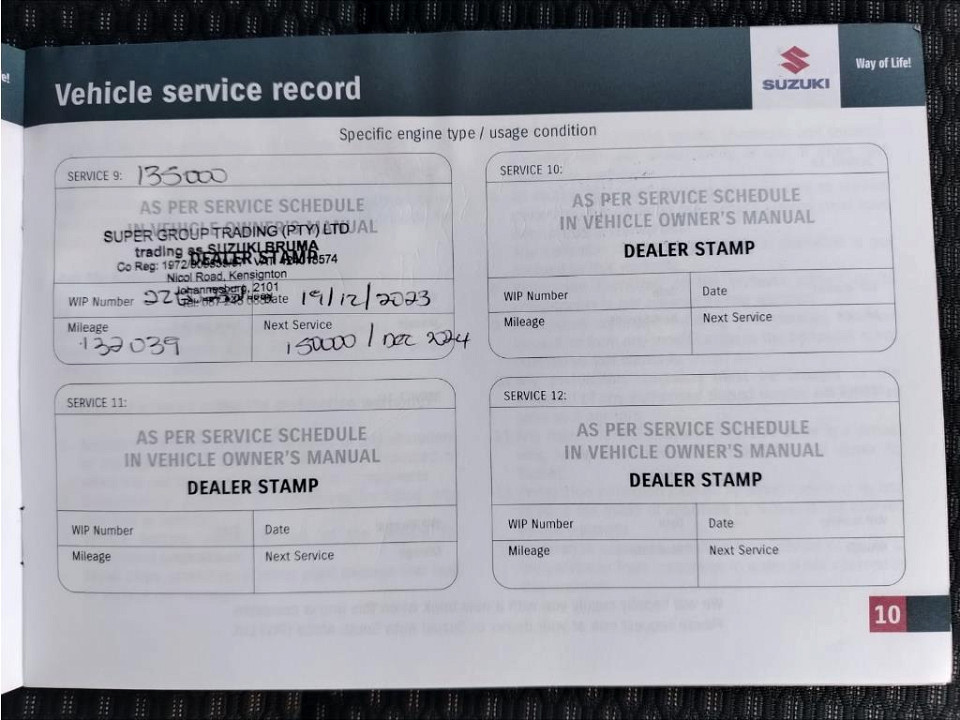 e!
Vehicle service record
SUZUKI
Way of Life!
Specific engine type / usage condition
SERVICE 9: 135000
AS PER SERVICE SCHEDULE
IN VEHICLE OWNER'S MANUAL
DEALER STAMP
SUPER GROUP TRADING (PTY) LTD
trading as SUZUKI BRUMA
Co Reg: 1972/
Nicol Road, Kensignton
Johannesburg, 2101
WIP Number
Date 19/12/2023
Mileage 132039
Next Service 150000 / DEC 2024
SERVICE 10:
AS PER SERVICE SCHEDULE
IN VEHICLE OWNER'S MANUAL
DEALER STAMP
WIP Number
Date
Mileage
Next Service
SERVICE 11:
AS PER SERVICE SCHEDULE
IN VEHICLE OWNER'S MANUAL
DEALER STAMP
WIP Number
Date
Mileage
Next Service
SERVICE 12:
AS PER SERVICE SCHEDULE
IN VEHICLE OWNER'S MANUAL
DEALER STAMP
WIP Number
Date
Mileage
Next Service
10